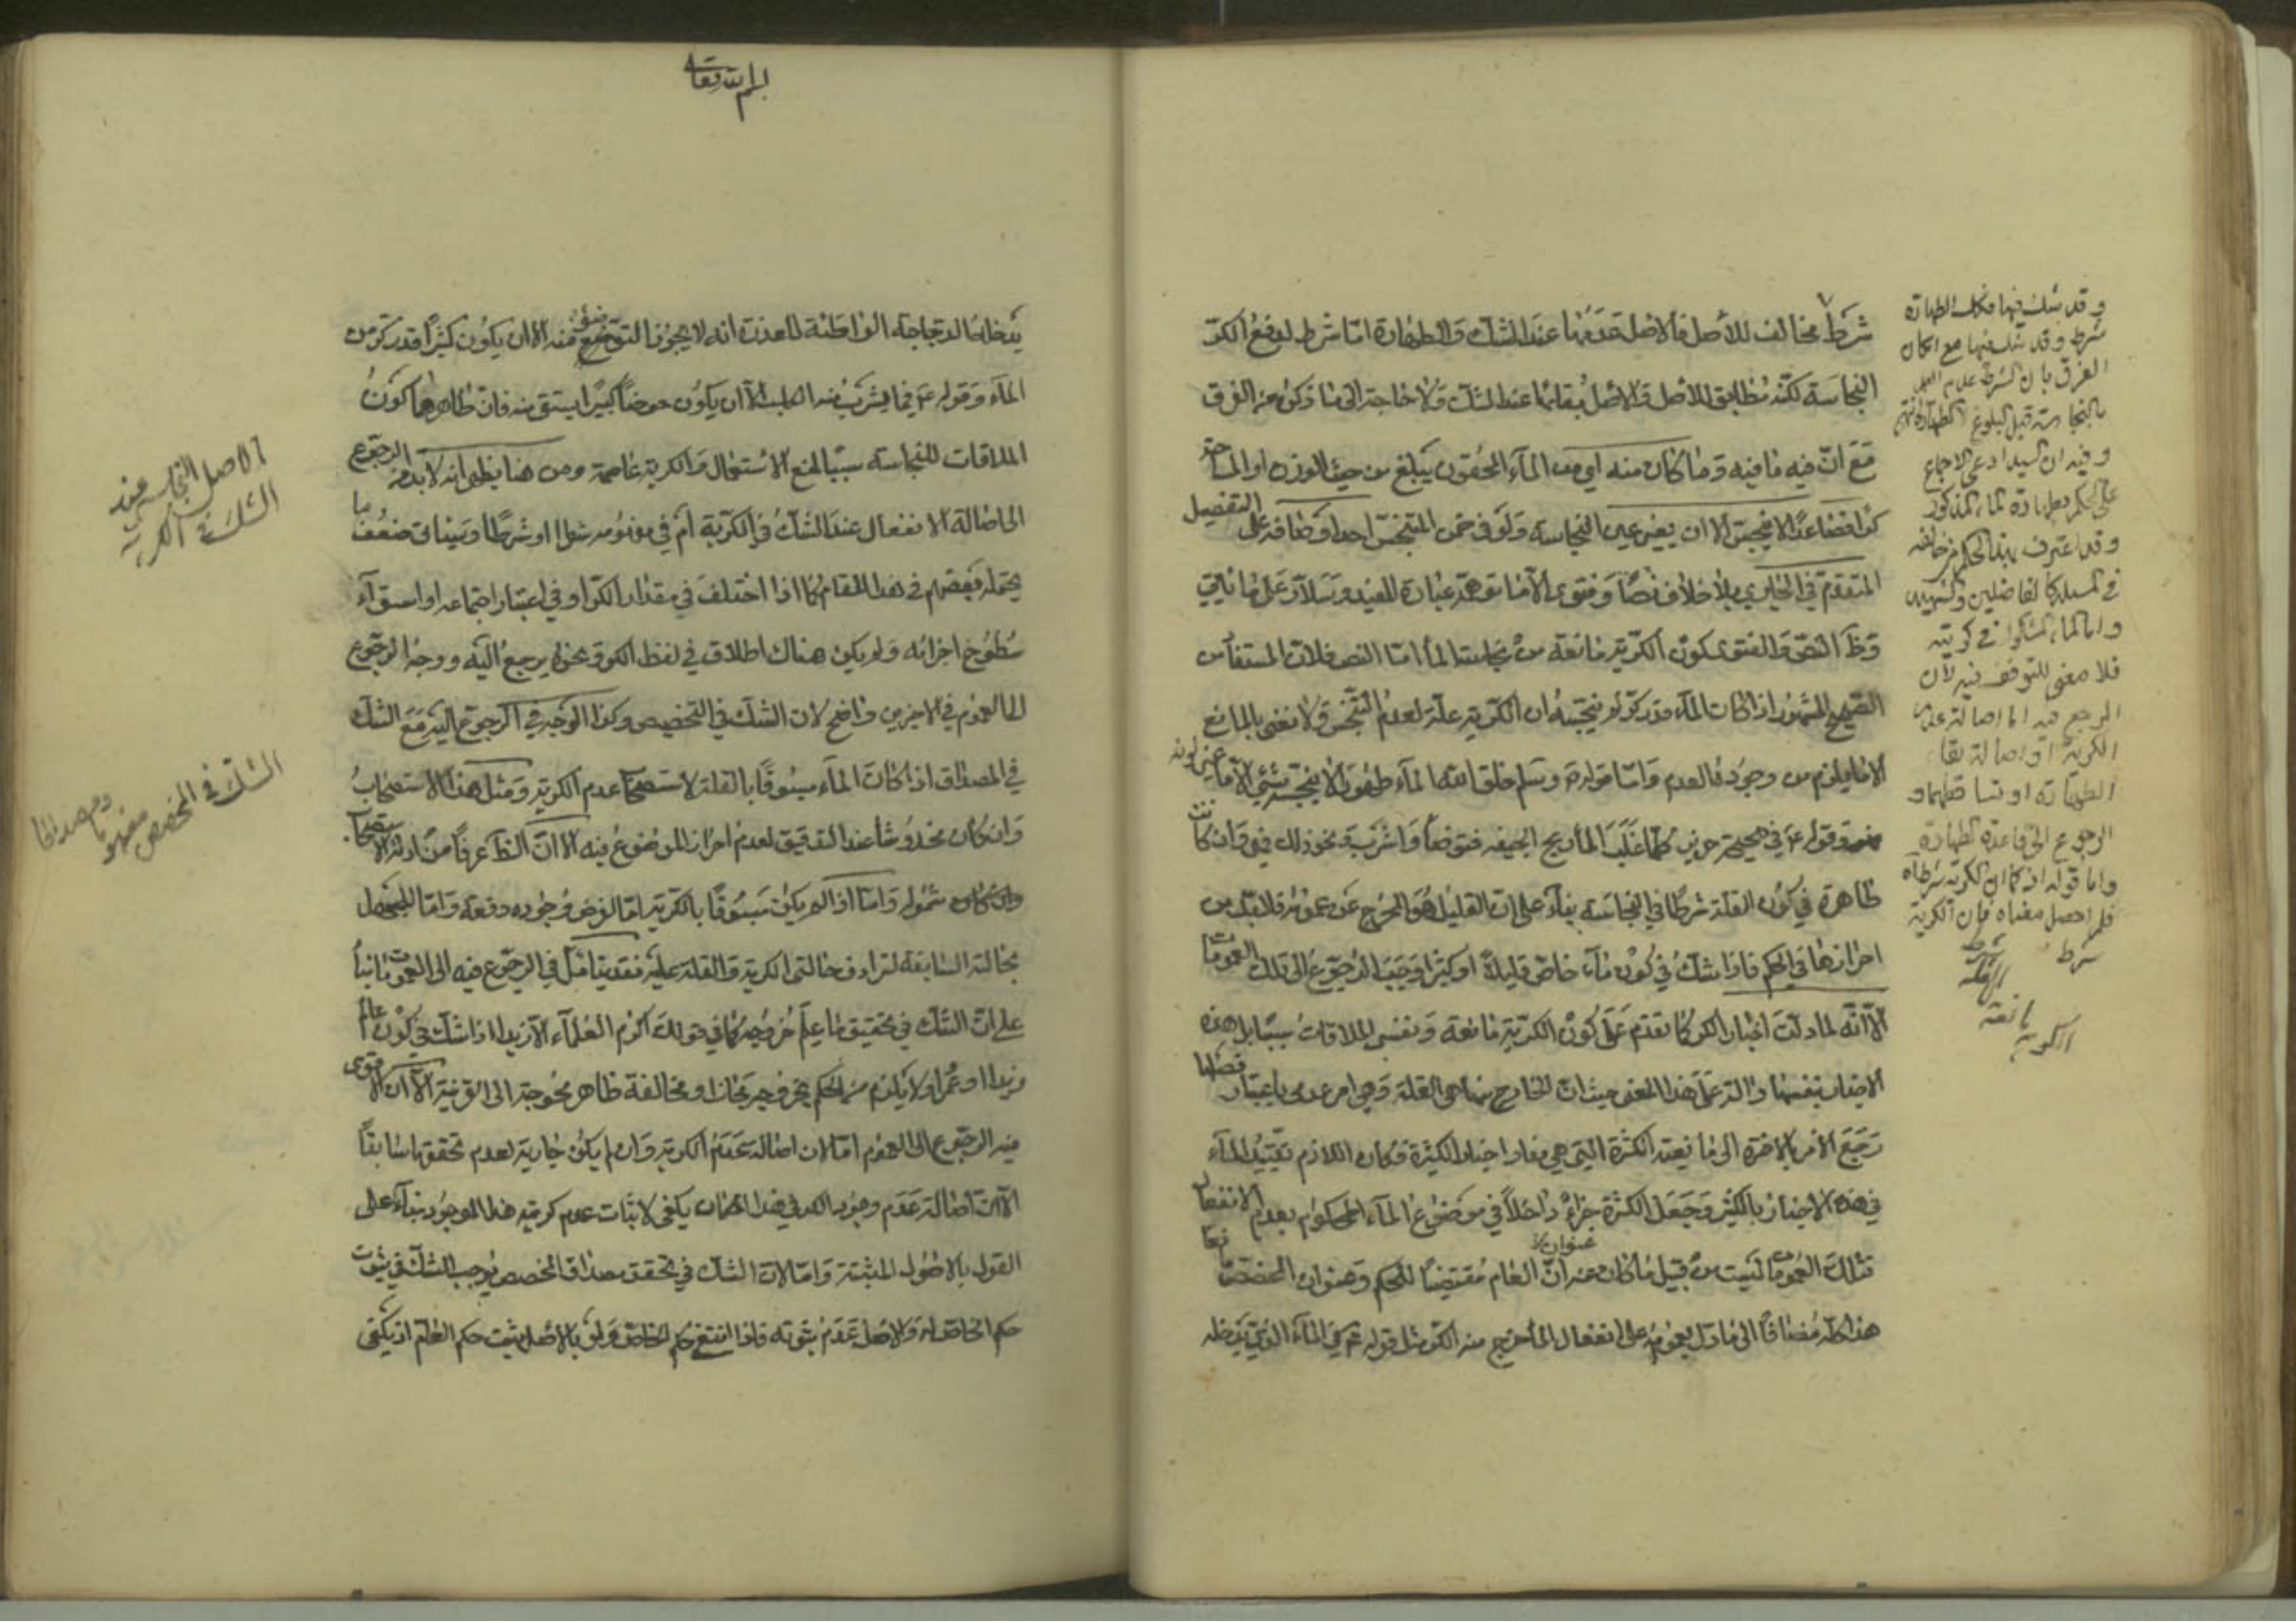 شرط مخالف للأصل فالاصل عدمها عند الشك والطهارة امّا شرط لدفع الكر
النجاسة لكنّه مطابق للاصل والاصل بقائها عند الشك ولا حاجة الى ما ذكره من الفرق
مع انّ فيه ما فيه وما كان منه اي من الماء المحقون يبلغ من حيث الوزن او المساحة
كرّا فصاعدا لا ينجس الا ان يغير عين النجاسة ولو في ضمن المتنجّس احد اوصافه على التفصيل
المتقدم في الجاري بلا خلاف نصّا وفتوى الا ما توهمه عبارة المفيد وسلار على ما ياتي
وظ النصّ والفتوى كون الكريّة مانعة من نجاسة الماء امّا النص فلان المستفاد من
الصحيح المشهور اذا كان الماء قدر كرّ لم ينجّسه ان الكرية علة لعدم التنجّس ولا نعنى بالمانع
الا ما يلزم من وجوده العدم وامّا قوله ص وسلم خلق الله الماء طهورا لا ينجّسه شئ الا ما غير لونه
وقوله ع في صحيحة حريز كلما غلب الماء ريح الجيفه فتوضّأ واشرب ونحو ذلك فهى وان كانت
ظاهرة في كون القلة شرطا في النجاسة بناء على ان القليل هو المخرج عن عمومه فلا بد من
احرازها في الحكم فاذا شك في كون ماء خاص قليلا او كثيرا وجب الرجوع الى تلك العمومات
الا انّه لما دلت اخبار الكر كما تقدم على كون الكرية مانعة ونفس الملاقات سببا بل هذه
الاخبار بنفسها دالة على هذا المعنى حيث ان الخارج منها هى القلة وهى امر عدمى باعتبار فصلها
رجع الامر بالاخرة الى مانعية الكثرة التي هي مفاد اخبار الكثرة فكان اللازم تقييد الماء
في هذه الاخبار بالكثير وجعل الكثرة جزاء داخلا في موضوع الماء المحكوم بعدم الانفعال
فتلك العمومات ليست من قبيل ما كان عنوان العام مقتضيا للحكم وعنوان المخصص مانعا
هذا كله مضافا الى ما دل بعمومه على انفعال الماء خرج منه الكر مثل قوله ع في الماء الذي يدخله
وقد يشك فيها فتلك الطهارة
شرط وقد يشك فيها مع امكان
الفرق بان الشرط عدم العلم
بالنجاسة قبل البلوغ الطهارة انتهى
وفيه ان السيد ادعى الاجماع
على الحكم بطهارة الماء المذكور
وقد اعترف بهذا الحكم من خالفه
في المسئلة كالفاضلين والشهيدين
واما الماء المشكوك في كريته
فلا معنى للتوقف فيه لان
المرجع فيه اما اصالة عدم
الكرية او اصالة بقاء
الطهارة او تساقطهما و
الرجوع الى قاعدة الطهارة
واما قوله اذ كما ان الكرية شرط اه
فلم احصل معناه فان الكرية
شرط
القلة شرط
مانعة
الكرية
بسم الله تعالى
يدخله الدجاجة الواطئة للعذرة انه لا يجوز التوضؤ منه الا ان يكون كثيرا قدر كر من
الماء وقوله ع فيما يشرب منه الكلب الا ان يكون حوضا كبيرا يستقى منه فانّ ظاهرهما كون
الملاقات للنجاسة سببا لمنع الاستعمال والكرية عاصمة ومن هنا يظهر انه لا بد من الرجوع
الى اصالة الانفعال عند الشك في الكرية أم في مفهومه شطرا او شرطا وسياتى ضعف ما
يحتمله بعضهم في هذا المقام كما اذا اختلف في مقدار الكر او في اعتبار اجتماعه او استواء
سطوح اجزائه ولم يكن هناك اطلاق في لفظ الكر ونحوه يرجع اليه ووجه الرجوع
الى العموم في الاخيرين واضح لان الشك في التخصيص وكذا الوجه في الرجوع اليه مع الشك
في المصداق اذا كان الماء مسبوقا بالقلة لاستصحاب عدم الكرية ومثل هذا الاستصحاب
وان كان مخدوشا عند التدقيق لعدم احراز الموضوع فيه الا انّ الظ عرفا من ادلة الاستصحاب
شموله وامّا اذا لم يكن مسبوقا بالكرية امّا لفرض وجوده دفعة وامّا للجهل
بحالته السابقة لترادف حالتى الكرية والقلة عليه فقد يتامّل في الرجوع فيه الى العمومات بناء
على انّ الشك في تحقيق ما علم خروجه كما في قولك اكرم العلماء الا زيدا اذا شك في كون عالم
زيدا او عمرا ولا يلزم من الحكم بخروجه مجاز او مخالفة ظاهر محوجة الى القرينة الا ان الاقوى
فيه الرجوع الى العموم امّا لان اصالة عدم الكرية وان لم يكن جارية لعدم تحققها سابقا
الا انّ اصالة عدم وجود الكر في هذا المكان يكفى لاثبات عدم كرية هذا الموجود بناء على
القول بالاصول المثبتة وامّا لان الشك في تحقق مصداق المخصص يوجب الشك في ثبوت
حكم الخاص له والاصل عدم ثبوته فاذا انتفى حكم الخاص ولو بالاصل ثبت حكم العام اذ يكفى
الاصل النجاسة عند
الشك في الكرية
الشك في المخصص
مفهوما
ومصداقا